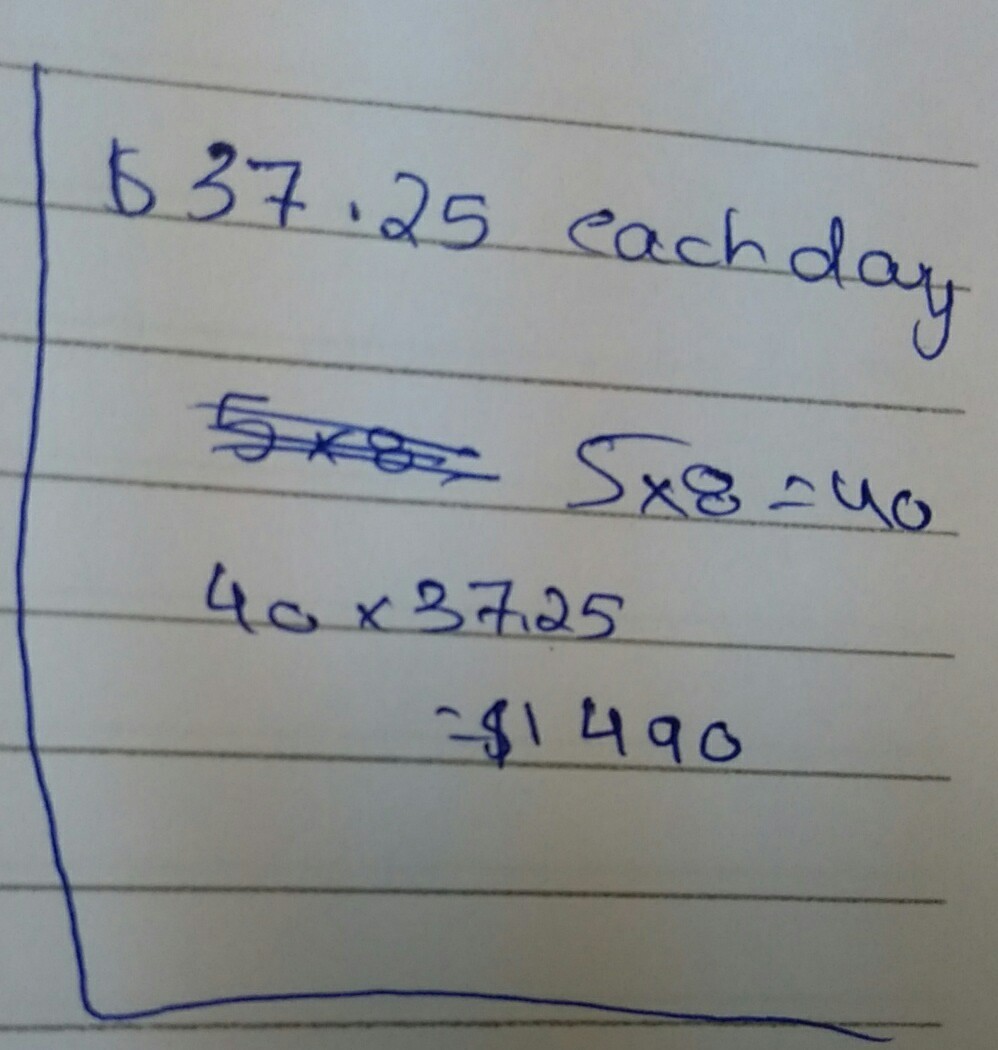 $ 37.25 each day
5×8= 5×8=40
40×37.25
=$1490